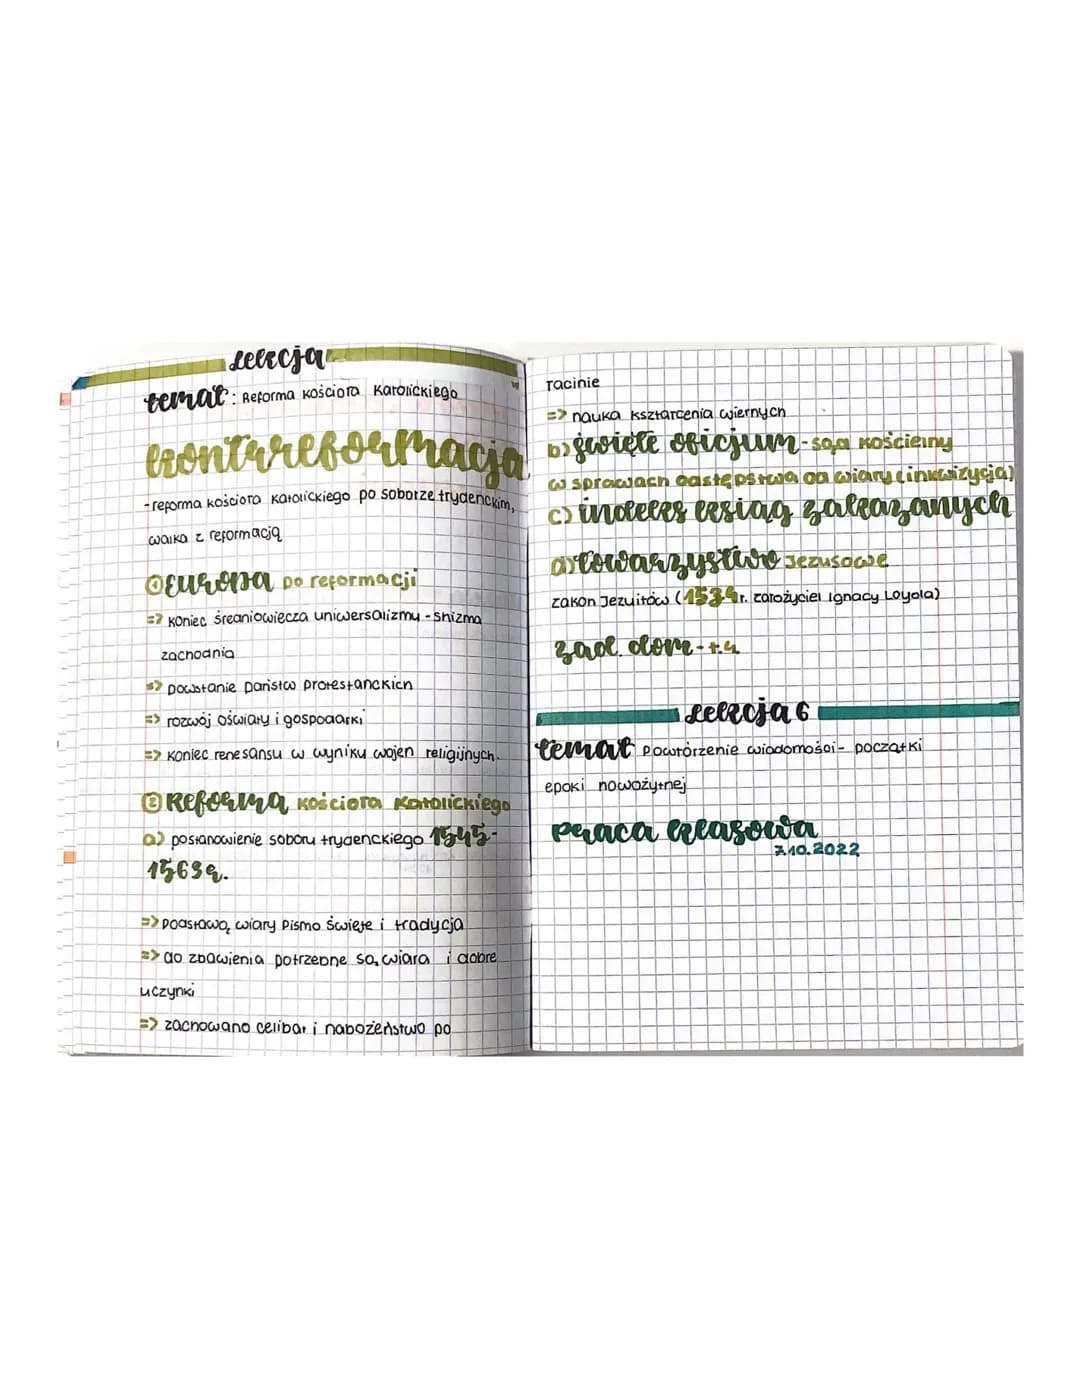 Lekcja
temat: Reforma kościoła Katolickiego
kontrreformacja
-reforma kościoła Katolickiego po soborze trydenckim,
walka z reformacją
① Europa po reformacji
=> koniec średniowiecza uniwersalizmu - shizma
zachodnia
=> powstanie państw protestanckich
=> rozwój oświaty i gospodarki
=> koniec renesansu w wyniku wojen religijnych.
② Reforma kościoła Katolickiego
a) postanowienie soboru trydenckiego 1545-
1563r.
=> podstawą wiary Pismo Święte i tradycja
=> do zbawienia potrzebne są wiara i dobre
uczynki
=> zachowano celibat i nabożeństwo po
łacinie
=> nauka kształcenia wiernych
b) święte oficjum - sąd kościelny
w sprawach odstępstwa od wiary (inkwizycja)
c) indeks ksiąg zakazanych
d) towarzystwo Jezusowe
zakon Jezuitów (1534r. założyciel Ignacy Loyola)
zad. dom - t.4
Lekcja 6
temat Powtórzenie wiadomości - początki
epoki nowożytnej
Praca klasowa
7.10.2022